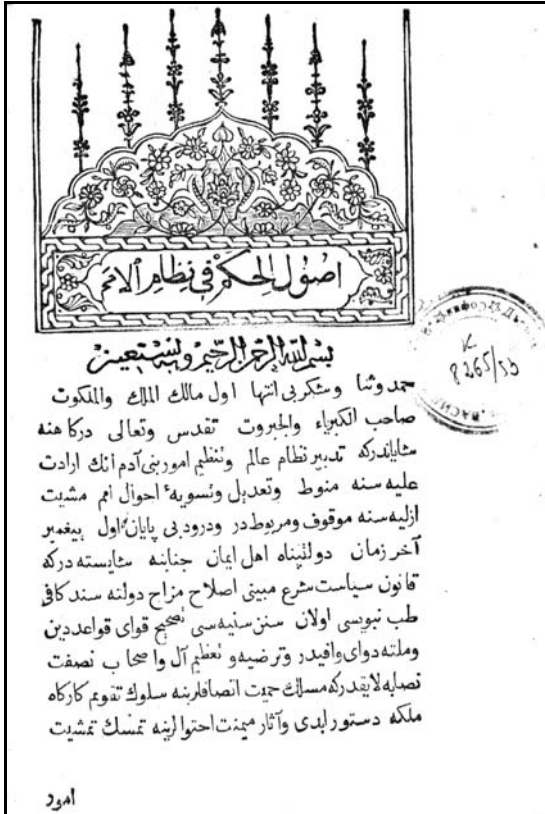 اصول الحكم فی نظام الامم
بسم الله الرحمن الرحیم وبه نستعین
حمد وثنا وشکر بی انتها اول مالك الملك والملکوت
صاحب الکبریاء والجبروت تقدس وتعالی درکاهنه
شایاندرکه تدبیر نظام عالم وتنظیم امور بنی آدم انك ارادت
علیه سنه منوط وتعدیل وتسویهٔ احوال امم مشیت
ازلیه سنه موقوف ومربوطدر ودرود بی پایان اول پیغمبر
آخر زمان دولتپناه اهل ایمان جنابنه شایسته درکه
قانون سیاست شرع مبینی اصلاح مزاج دولته سند کافی
طب نبویسی اولان سنن سنیه سی تصحیح قوای قواعد دین
وملته دوای وافیدر وترضیه و تعظیم آل واصحاب نصفت
نصابه لایقدرکه مسلك حمیت انصافلرینه سلوك تقویم کارکاه
ملکه دستور ابدی وآثار میمنت احتوالرینه تمسك تمشیت
امور
К.
8265/53